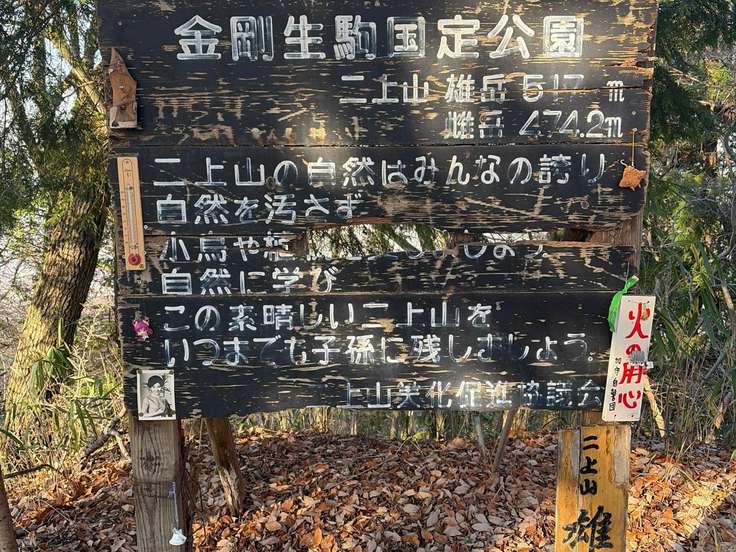 金剛生駒国定公園
二上山 雄岳 517m
雌岳 474.2m
二上山の自然はみんなの誇り
自然を汚さず
小鳥や
ましょう
自然に学び
この素晴しい二上山を
いつまでも子孫に残しましょう
上山美化促進協議会
火の用心
二上山
雄